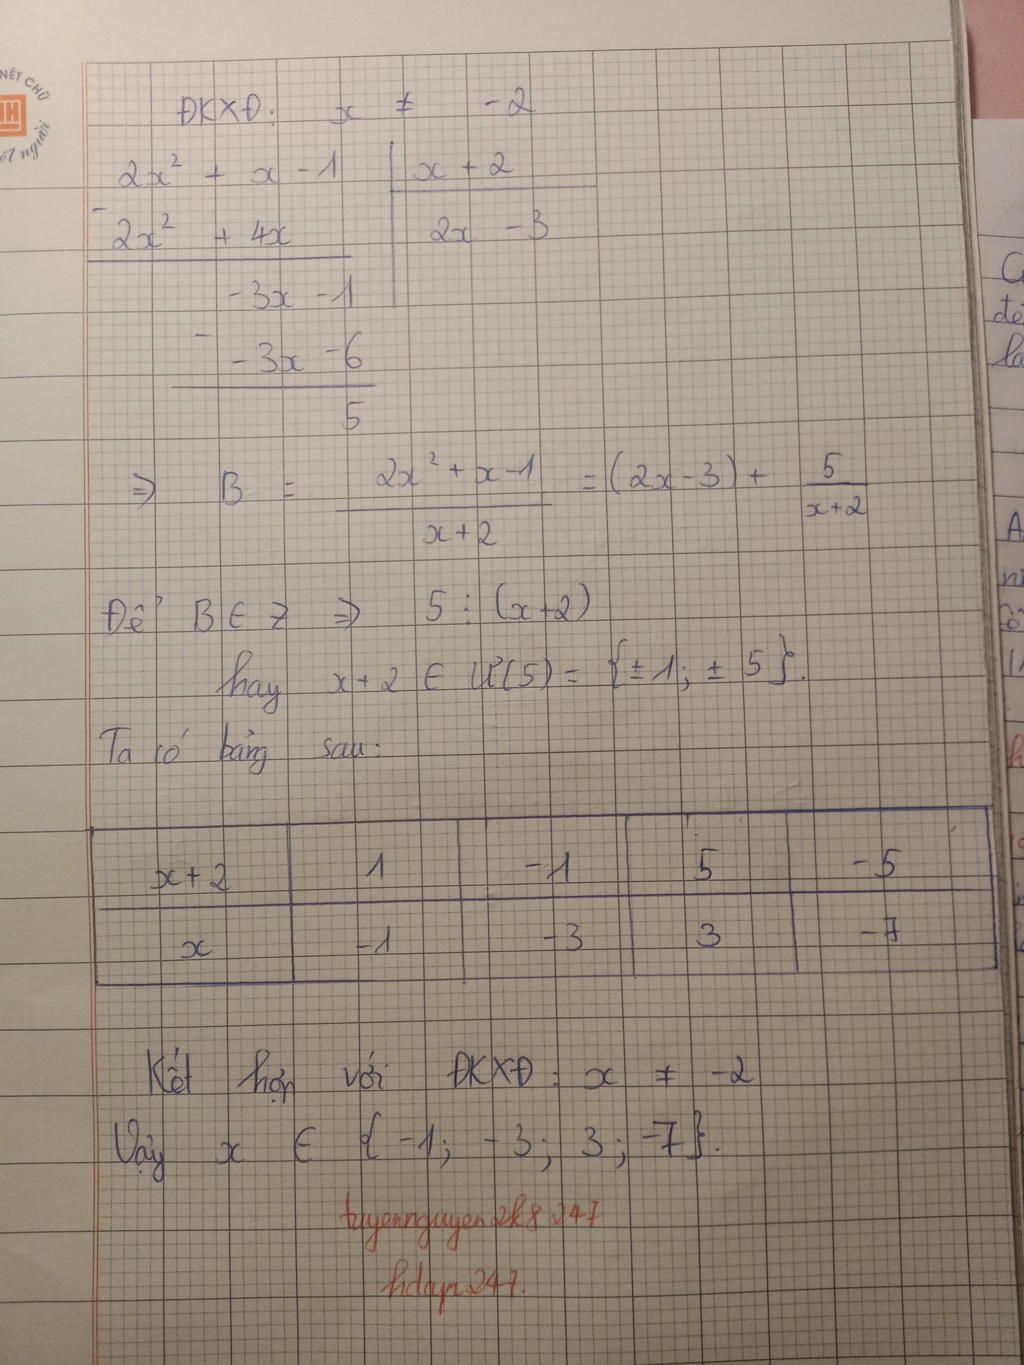 NÉT CHỮ
người
ĐKXĐ: x ≠ -2
2x² + x - 1 | x + 2
- 2x² + 4x | 2x - 3
-3x - 1
- -3x - 6
5
⇒ B = (2x² + x - 1)/(x + 2) = (2x - 3) + 5/(x + 2)
Để B ∈ Z ⇒ 5 ⋮ (x + 2)
hay x + 2 ∈ Ư(5) = {± 1; ± 5}.
Ta có bảng sau:
x + 2 | 1 | -1 | 5 | -5
x | -1 | -3 | 3 | -7
Kết hợp với ĐKXĐ: x ≠ -2
Vậy x ∈ {-1; -3; 3; -7}.
tuyennguyen2k8247
hdap247.